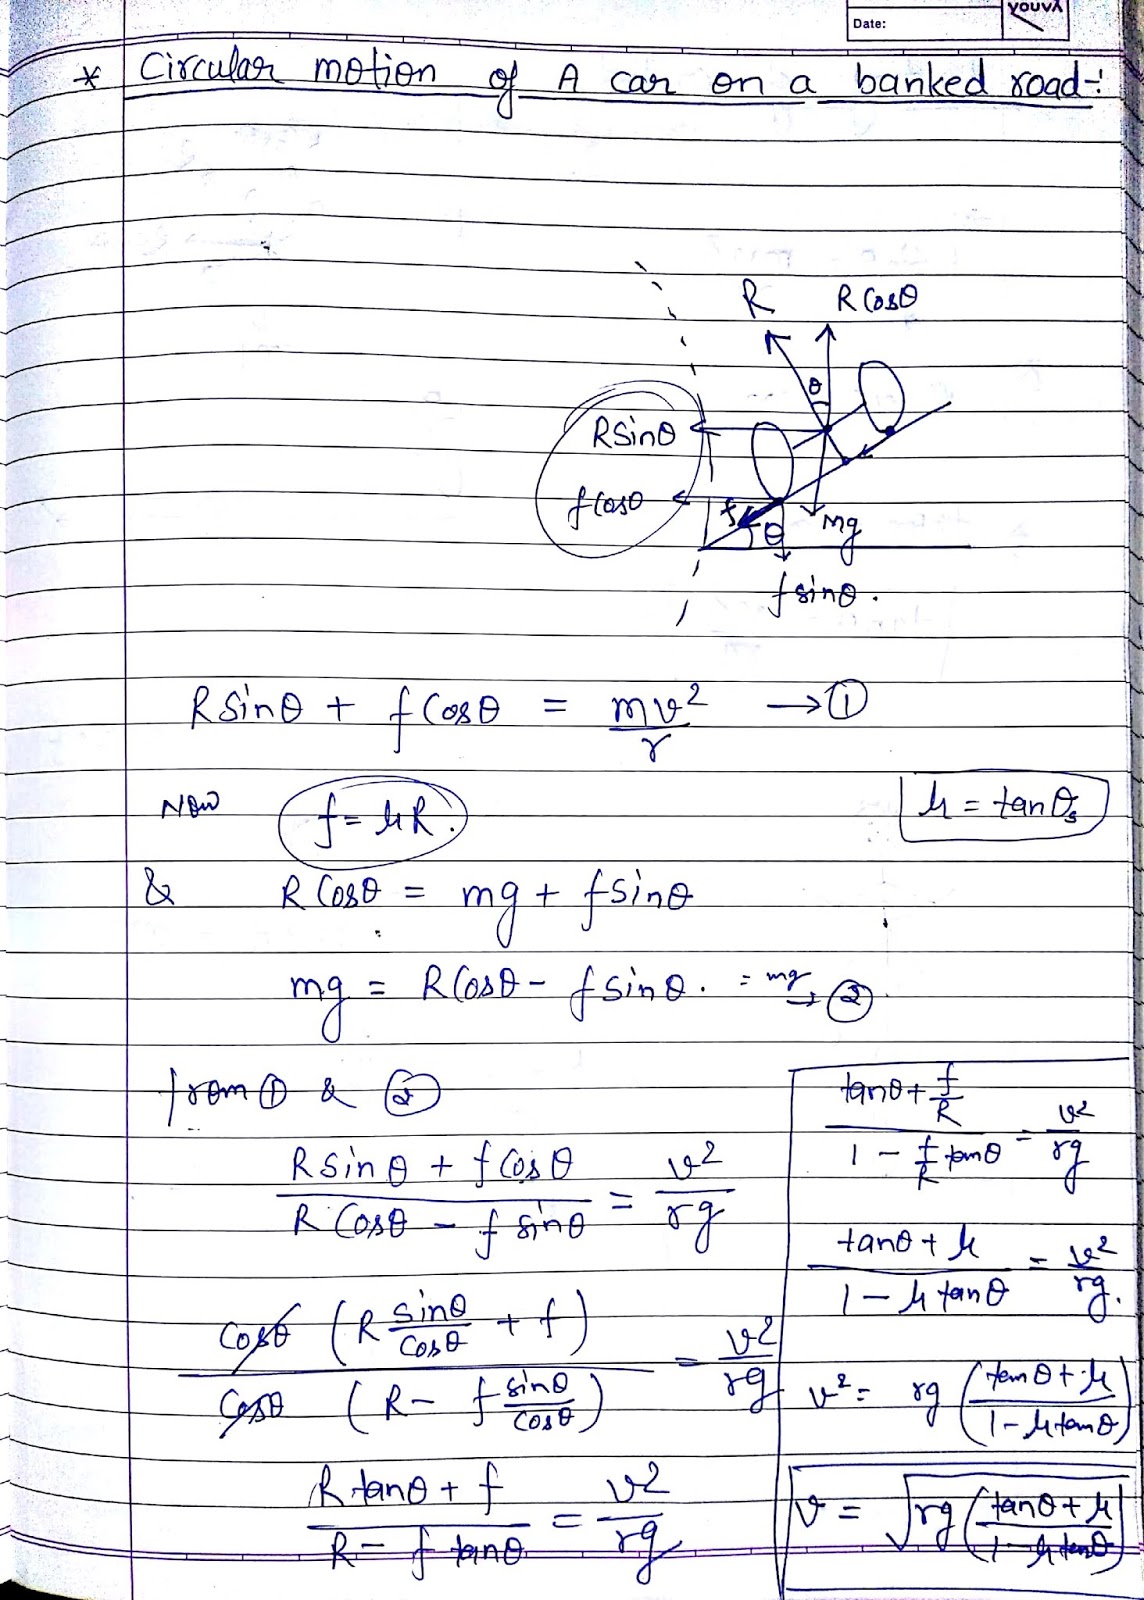 youva
Date:
* Circular motion of A car on a banked road-:
R R Cosθ
θ
RSinθ
f Cosθ
f θ mg
f sinθ.
R Sinθ + f Cosθ = mv²/r → ①
Now f = μR. μ = tanθs
& R Cosθ = mg + f Sinθ
mg = R Cosθ - f Sinθ. = mg → ②
from ① & ②
R Sinθ + f Cosθ / R Cosθ - f sinθ = v²/rg
Cosθ (R sinθ/Cosθ + f) / Cosθ (R - f sinθ/Cosθ) = v²/rg
R tanθ + f / R - f tanθ = v²/rg
tanθ + f/R / 1 - f/R tanθ = v²/rg
tanθ + μ / 1 - μ tanθ = v²/rg.
v² = rg (tanθ + μ / 1 - μ tanθ)
v = √rg (tanθ + μ / 1 - μ tanθ)